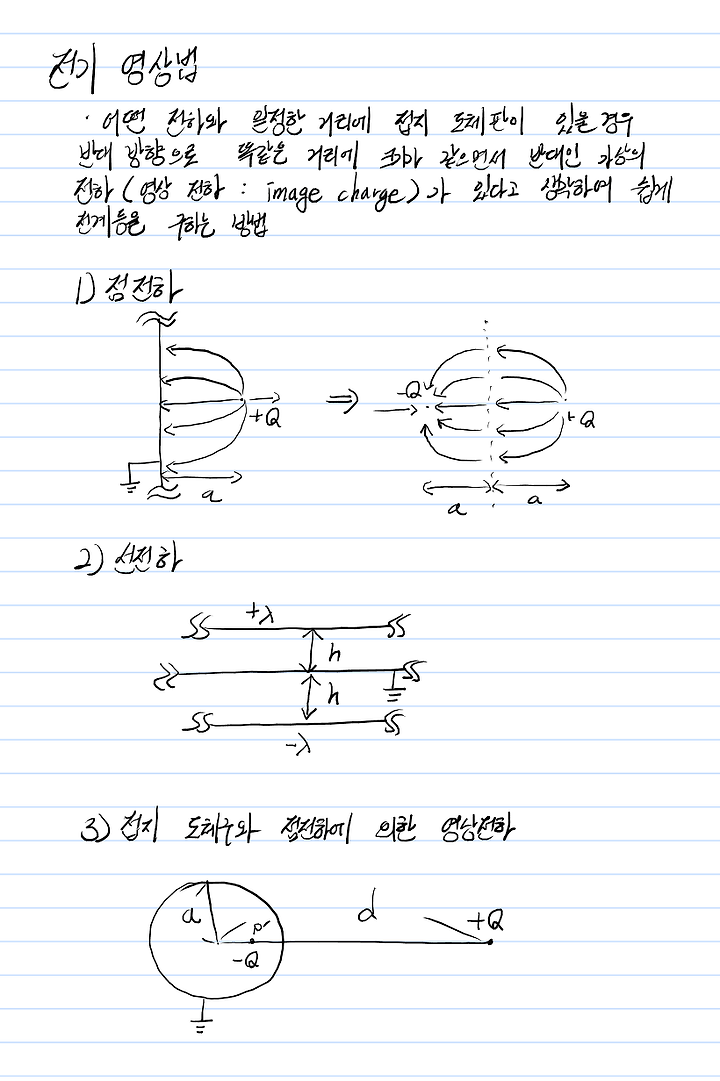 전기 영상법
· 어떤 전하와 일정한 거리에 접지 도체판이 있을 경우
반대 방향으로 똑같은 거리에 크기가 같으면서 반대인 가상의
전하 (영상 전하 : image charge)가 있다고 생각하여 쉽게
전계등을 구하는 방법
1) 점전하
+Q
a
⇒
-Q
+Q
a
a
2) 선전하
+λ
h
h
-λ
3) 접지 도체구와 점전하에 의한 영상전하
a
d
+Q
P'
-Q